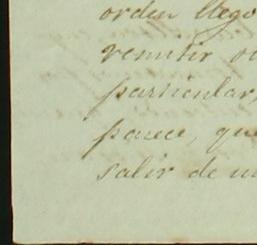 orden llego
remitir
particular,
parece, que
salir de